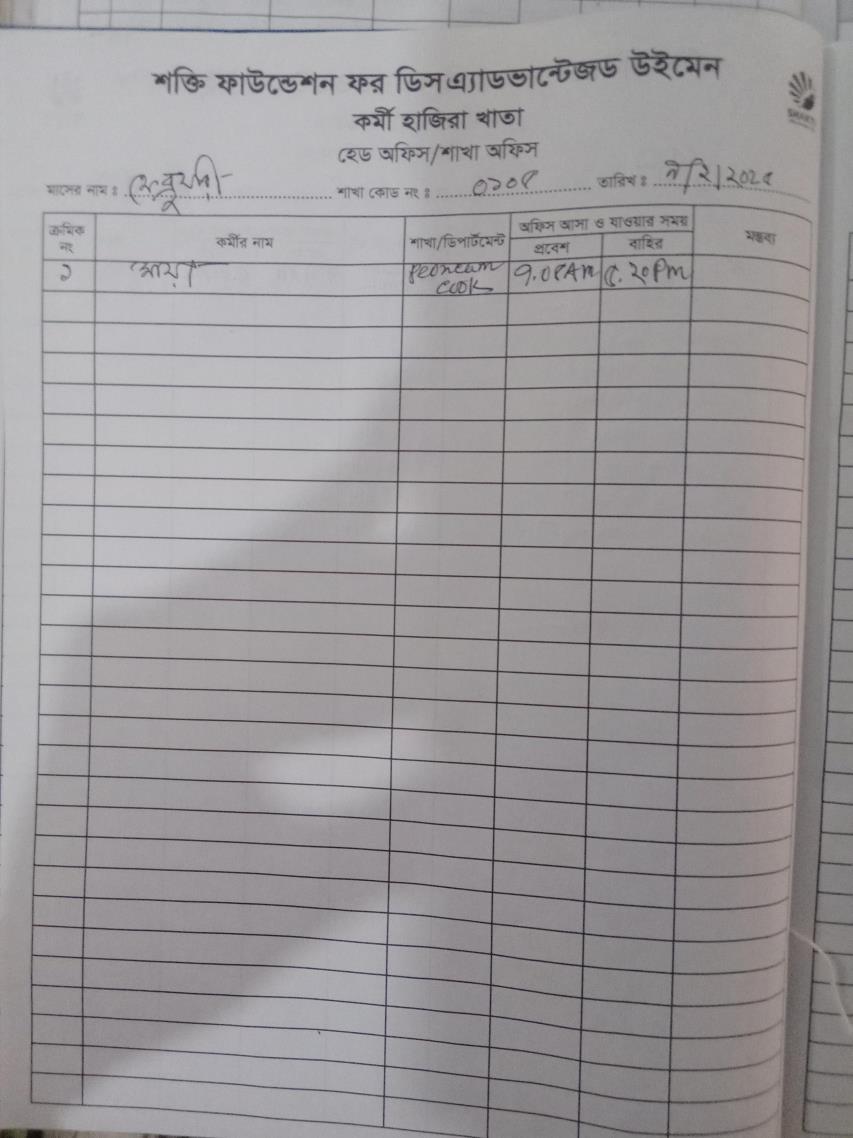 শক্তি ফাউন্ডেশন ফর ডিসএ্যাডভান্টেজড উইমেন
কর্মী হাজিরা খাতা
হেড অফিস/শাখা অফিস
মাসের নাম : ফেব্রুয়ারী শাখা কোড নং : ০১০৫ তারিখ :
ক্রমিক নং কর্মীর নাম শাখা/ডিপার্টমেন্ট অফিস আসা ও যাওয়ার সময় মন্তব্য
প্রবেশ বাহির
১ Peoncum cook 9.05AM ৫.২০PM